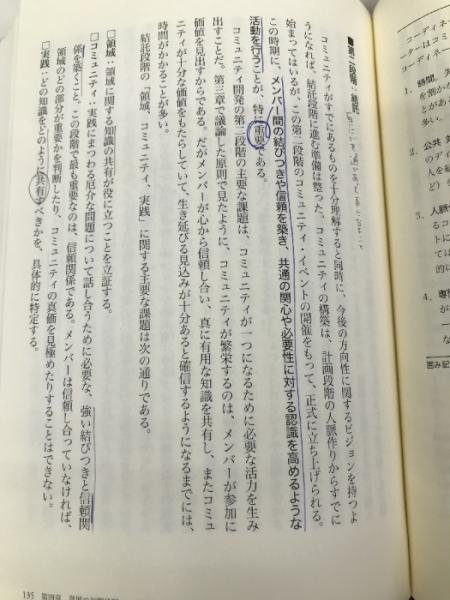 ■第二段階：結託
コミュニティがすでにあるものを十分理解すると同時に、今後の方向性に関するビジョンを持つよ
うになれば、結託段階に進む準備は整った。コミュニティの構築は、計画段階の人脈作りからすでに
始まってはいるが、この第二段階のコミュニティ・イベントの開催をもって、正式に立ち上げられる。
この時期に、メンバー間の結びつきや信頼を築き、共通の関心や必要性に対する認識を高めるような
活動を行うことが、特に重要である。
コミュニティ開発の第二段階の主要な課題は、コミュニティが一つになるために必要な活力を生み
出すことだ。第三章で議論した原則で見たように、コミュニティが繁栄するのは、メンバーが参加に
価値を見出すからである。だがメンバーが心から信頼し合い、真に有用な知識を共有し、またコミュ
ニティが十分な価値をもたらしていて、生き延びる見込みが十分あると確信するようになるまでには、
時間がかかることが多い。
結託段階の「領域、コミュニティ、実践」に関する主要な課題は次の通りである。
□領域：領域に関する知識の共有が役に立つことを立証する。
□コミュニティ：実践にまつわる厄介な問題について話し合うために必要な、強い結びつきと信頼関
係を築くこと。この段階で最も重要なのは、信頼関係である。メンバーは信頼し合っていなければ、
領域のどの部分が重要かを判断したり、コミュニティの真価を見極めたりすることはできない。
□実践：どの知識をどのように共有すべきかを、具体的に特定する。
135 第四章
コーディネ
ーターはコミ
コーディネー
1. 時間。
を割か
とがあ
多い。
2. 公共
のディ
人を結
ど）
3. 人脈
るコ
トに
ては
的に
4. 専門
が
囲み記